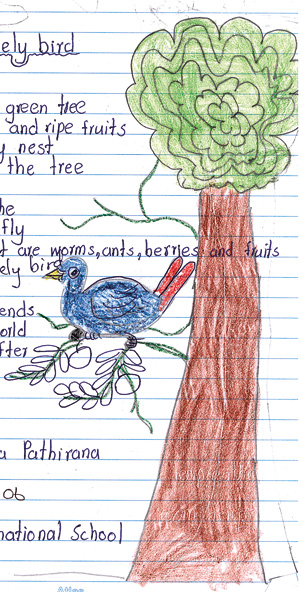 ely bird
green tree
and ripe fruits
y nest
the tree
he
fly
t are worms, ants, berries and fruits
ely bird
ends
orld
fter
a Pathirana
06
national School